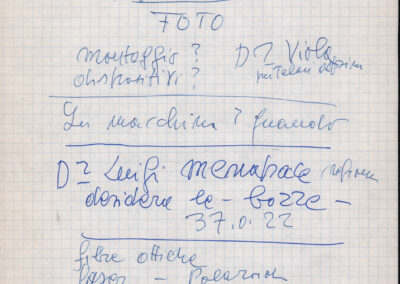 FOTO
montaggio ?
diapositivi ?
Dr Viola
La macchina ? quando
Dr Luigi Menapace
desidera le - bozze -
37.0.22
fibre ottiche
laser -